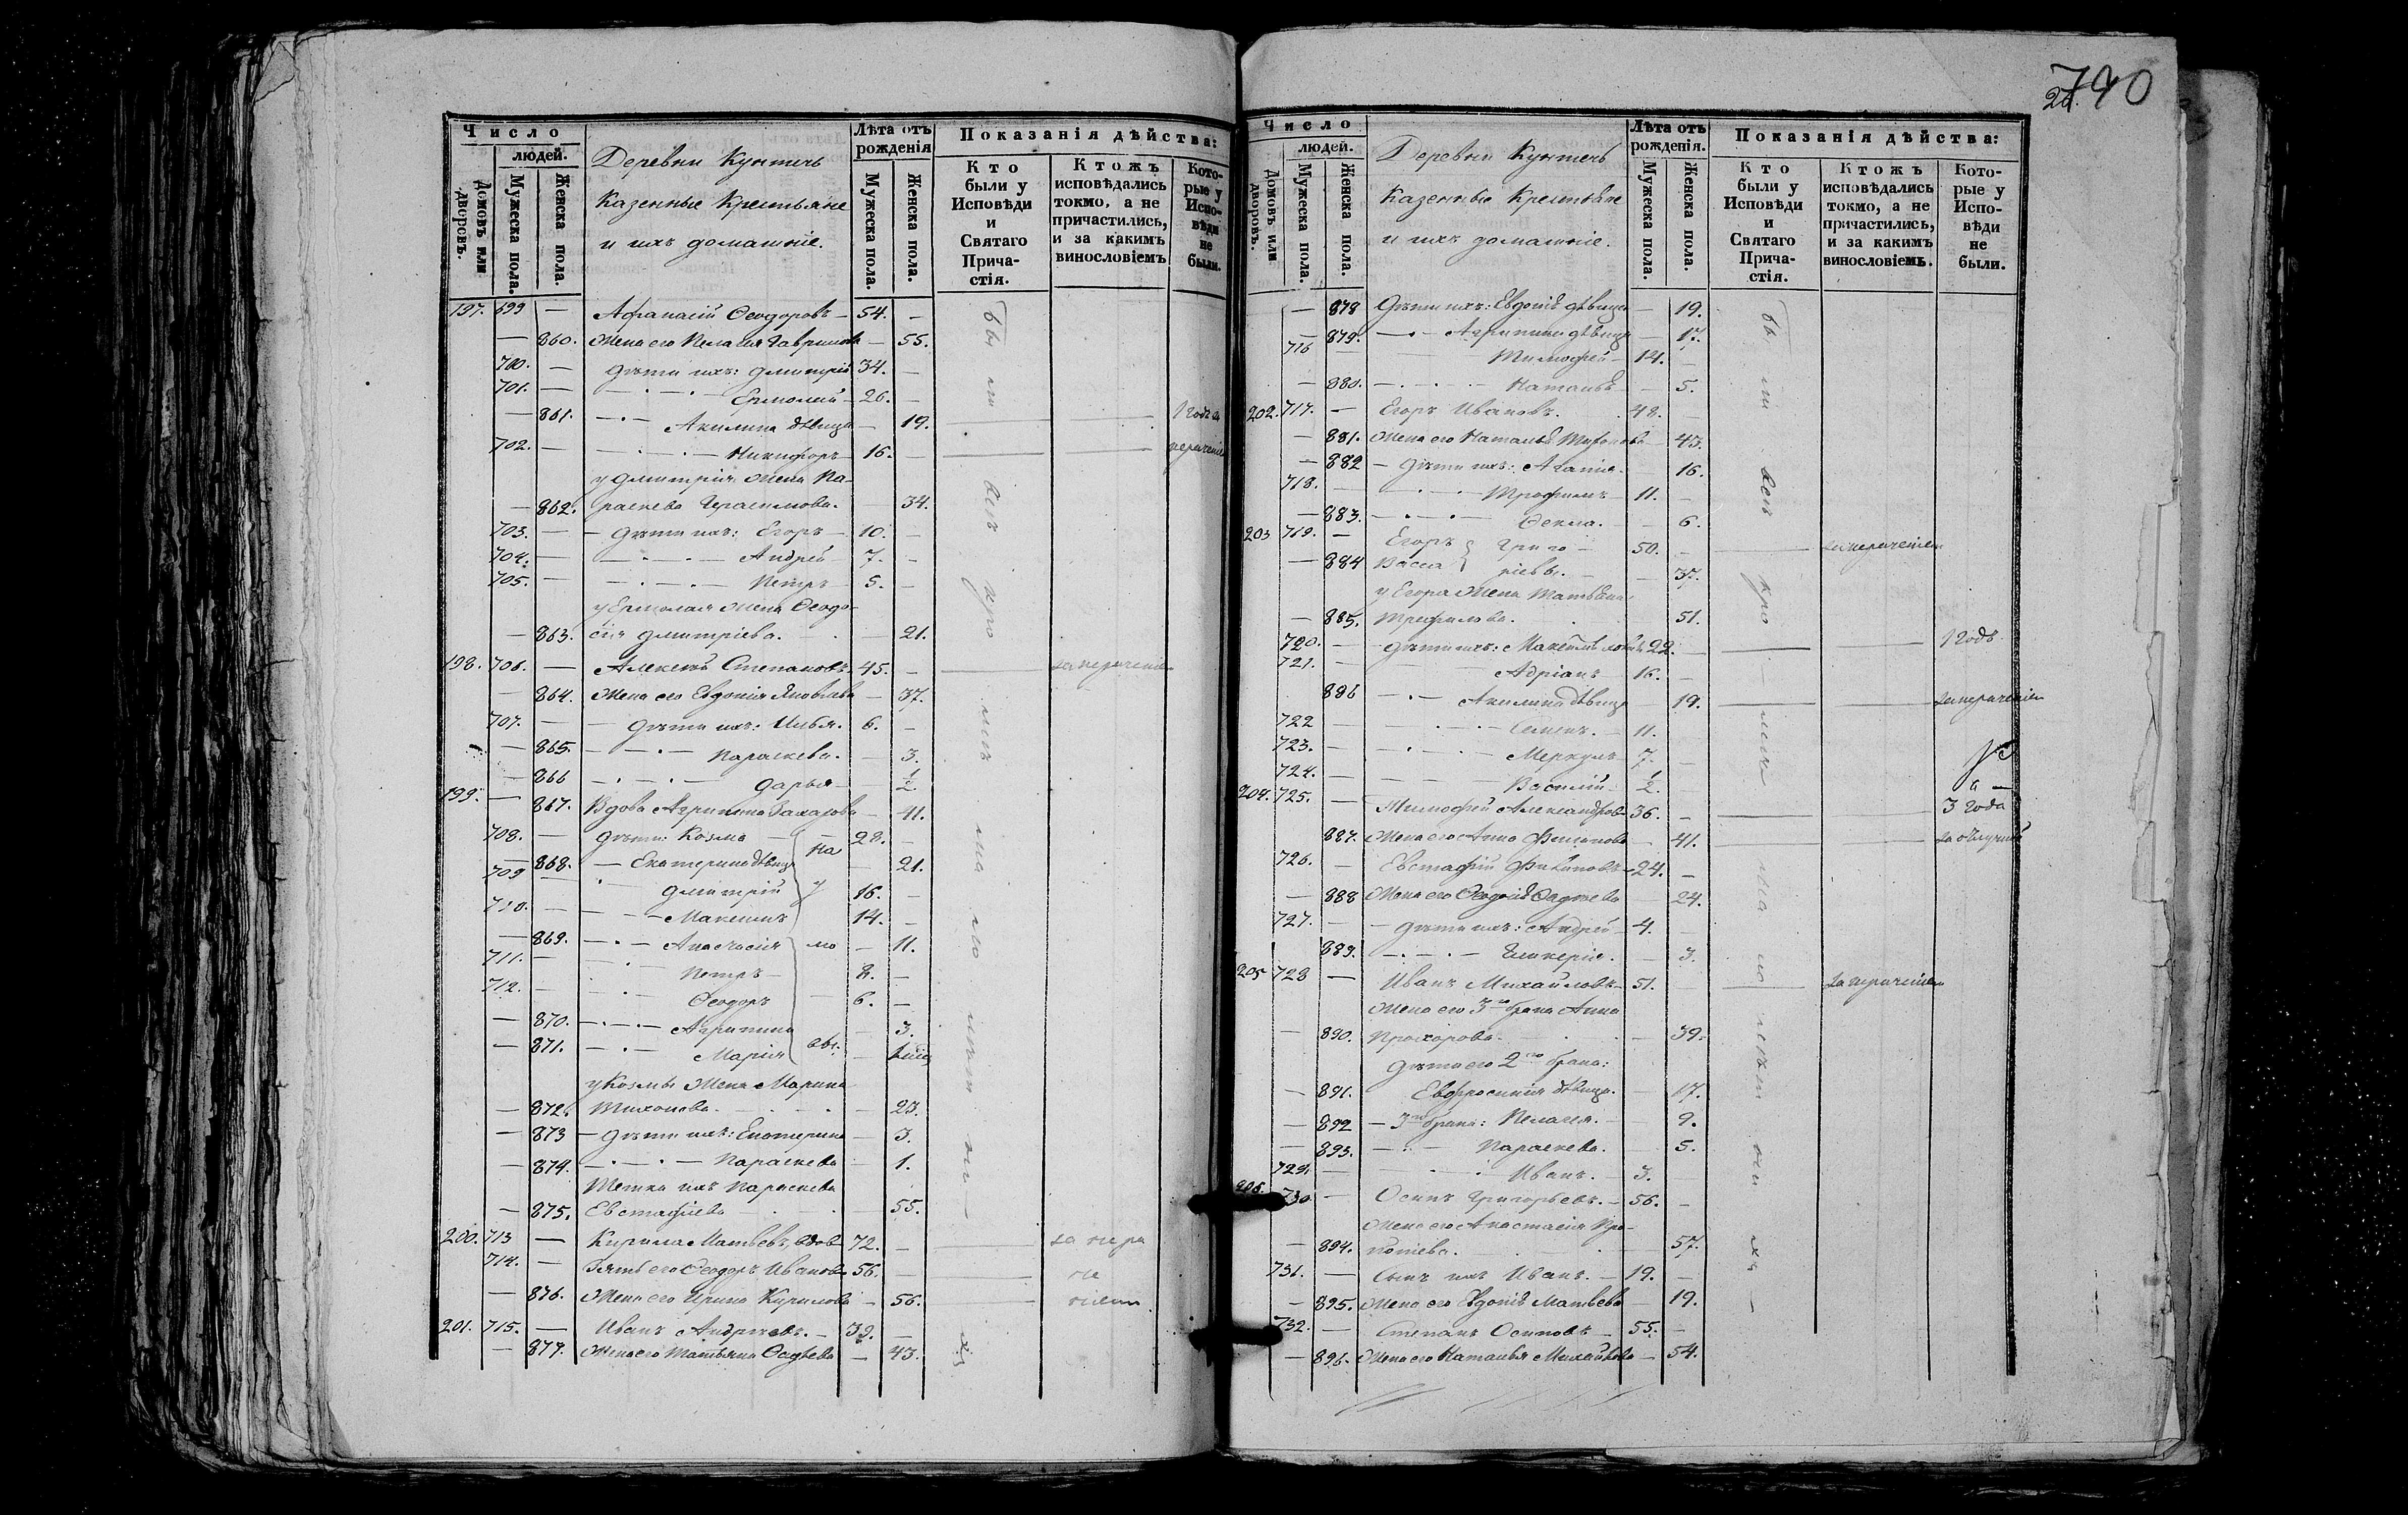 740
24.
Число
людей.
Домовъ или дворовъ.
Мужеска пола.
Женска пола.
Деревни Кунтечь
Казенные Крестьяне
и ихъ домашніе.
Лѣта отъ рожденія
Мужеска пола.
Женска пола.
Показанія дѣйства:
Кто были у Исповѣди и Святаго Причастія.
Ктожъ исповѣдались токмо, а не причастились, и за какимъ винословіемъ
Которые у Исповѣди не были.
197. 699 — Афанасій Ѳеодоровъ — 54. —
— 860. Жена его Пелагея Гаврилова — 55.
700. — Дѣти ихъ: Дмитрій 34. —
701. — Ермолай — 26. —
— 861. Акилина дѣвица — 19. — — 1 годъ за
702. — Никифоръ — 16. — — — нераченіе
у Дмитрія жена Па-
— 862. раскева Герасимова. — 34.
703. — Дѣти ихъ: Егоръ — 10. —
704. — Андрей 7. —
705. — Петръ 5. —
у Ермолая жена Ѳеодо-
— 863. сія Дмитріева. — 21.
198. 706. — Алексѣй Степановъ 45. — — за нераченіем
— 864. Жена его Евдокія Яковлева — 37.
707. — Дѣти ихъ: Илья. 6. —
— 865. Параскева. — 3.
— 866 Дарья — 1/2.
199. — 867. Вдова Агрипина Захарова — 41.
708. — Дѣти: Козма — 28. —
— 868. — Екатерина дѣвица — 21.
709 — Дмитрій 16. —
710. — Максимъ 14. —
— 869. Анастасія — 11.
711. — Петръ — 8. —
712. — Ѳеодоръ 6. —
— 870. Агрипина — 3.
— 871. Марія —
у Козмы жена Марина
— 872. Тихонова. — 23.
— 873 — Дѣти ихъ: Екатерина — 3.
— 874. Параскева — 1.
Тетка ихъ Параскева
— 875. Евстафіева — 55.
200. 713 — Кирила Матвѣевъ, вдов 72. — — за нера
714. — Зять его Ѳеодоръ Ивановъ 56. — — че
— 876. Жена его Ирина Кирилова — 56. — ніем
201. 715. — Иванъ Андреевъ. — 39. —
— 877. Жена его Татьяна Ѳадѣева — 43.
Число
людей.
Домовъ или дворовъ.
Мужеска пола.
Женска пола.
Деревни Кунтечь
Казенные Крестьяне
и ихъ домашніе.
Лѣта отъ рожденія.
Мужеска пола.
Женска пола.
Показанія дѣйства:
Кто были у Исповѣди и Святаго Причастія.
Ктожъ исповѣдались токмо, а не причастились, и за какимъ винословіемъ.
Которые у Исповѣди не были.
— 878 Дѣти ихъ: Евдокія дѣвица — 19.
— 879. Агрипина дѣвица — 17.
716 — Тимофей — 14. —
— 880. Наталья — 5.
202. 717. — Егоръ Ивановъ. 48. —
— 881. Жена его Наталья — 43.
— 882 — Дѣти ихъ: Агапія. — 16.
718. — Трофимъ 11. —
— 883. Ѳекла. — 6.
203 719. — Егоръ Григо- 50. — — за нераченіем
— 884 Васса ріевы. — 37.
у Егора жена Татьяна
— 885. Трефилова. 51.
720. — Дѣти ихъ: Максимъ 22. — — — 1 годъ
721. — Адріанъ 16. —
886 Акилина дѣвица — 19. — — за нераченіем
722 — Семенъ. — 11.
723. — Меркулъ 7. —
724. — Василій — 1/2.
204. 725. — Тимофей Александровъ 36. — — — 3 года
887. Жена его Анна — 41. — — за отлучкой
726. — Евстафій — 24. —
— 888 Жена его Ѳеодосія Ѳадѣева — 24.
727. — — Дѣти ихъ: Андрей — 4. —
889. Гликерія. — 3.
205 728 — Иванъ Михайловъ 51. — за нераченіем
Жена его 3го брака Анна
— 890. Прохорова. — 39.
Дѣти его 2го брака:
— 891. Евфросинія дѣвица. — 17.
— 892 — 3го брака: Пелагея. — 9.
— 893. Параскева. — 5.
729. — Иванъ. — 3.
206. 730 — Осипъ Григорьевъ. — 56. —
Жена его Анастасія Про-
— 894. копіева. — 57.
731. — Сынъ ихъ Иванъ. — 19. —
— 895. Жена его Евдокія Матвѣева — 19.
732. — Степанъ Осиповъ 55. —
— 896. Жена его Наталья Михайлова — 54.